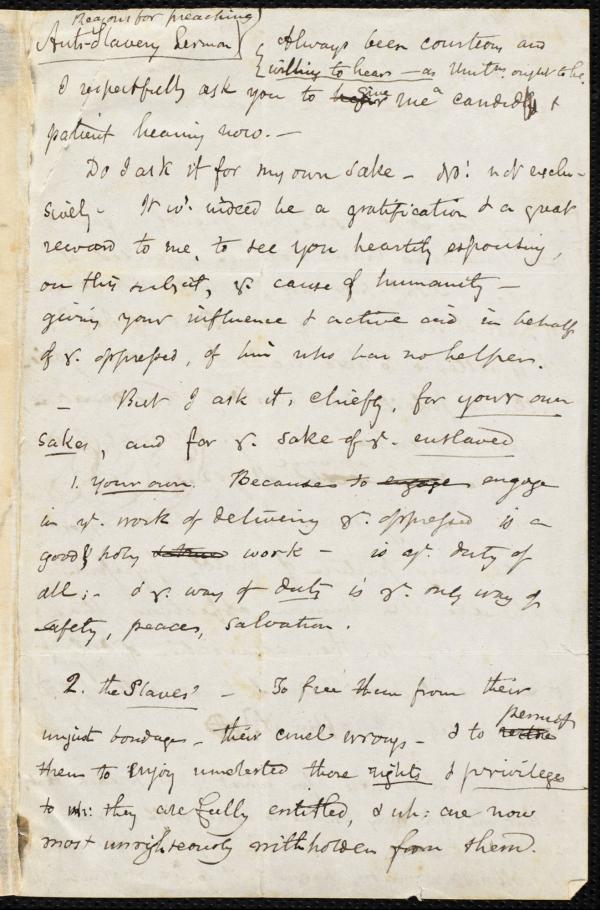 Reasons for preaching
Anti-Slavery Sermon
Always been courteous and
willing to hear — as Unitns. ought to be.
I respectfully ask you to give me a candid &
patient hearing now. —
Do I ask it for my own sake — No! not exclu-
sively. It wd. indeed be a gratification & a great
reward to me, to see you heartily espousing,
on this subject, ye. cause of humanity —
giving your influence & active aid in behalf
of ye. oppressed, of him who has no helper.
— But I ask it, chiefly, for your own
sakes, and for ye. sake of ye. enslaved
1. Your own. Because to engage engage
in ye. work of delivering ye. oppressed is a
good & holy work — is ye. duty of
all; — & ye. way of duty is ye. only way of
safety, peace, salvation.
2. the Slaves' — To free them from their
unjust bondage — their cruel wrongs — & to permit
them to enjoy unmolested those rights & privileges
to wh: they are fully entitled, & wh: are now
most unrighteously withholden from them.